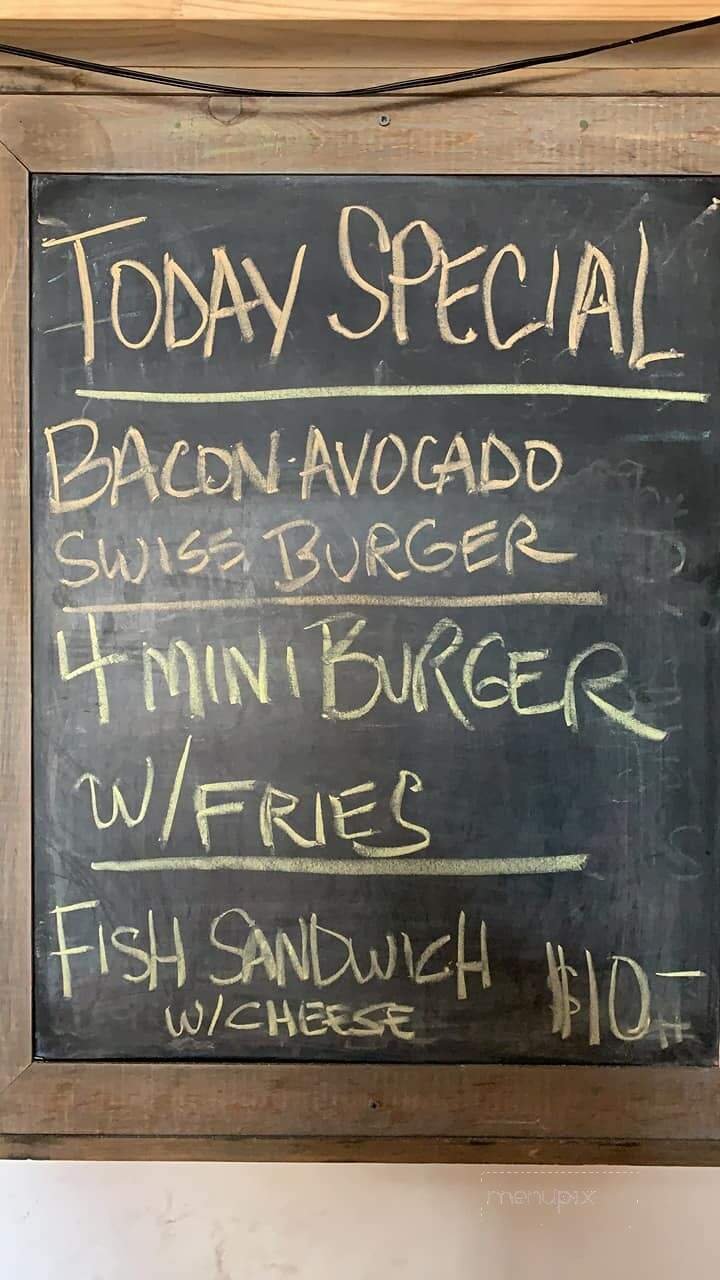 TODAY SPECIAL
BACON AVOCADO
SWISS BURGER
4 MINI BURGER
W/FRIES
FISH SANDWICH
W/CHEESE $10
menupix